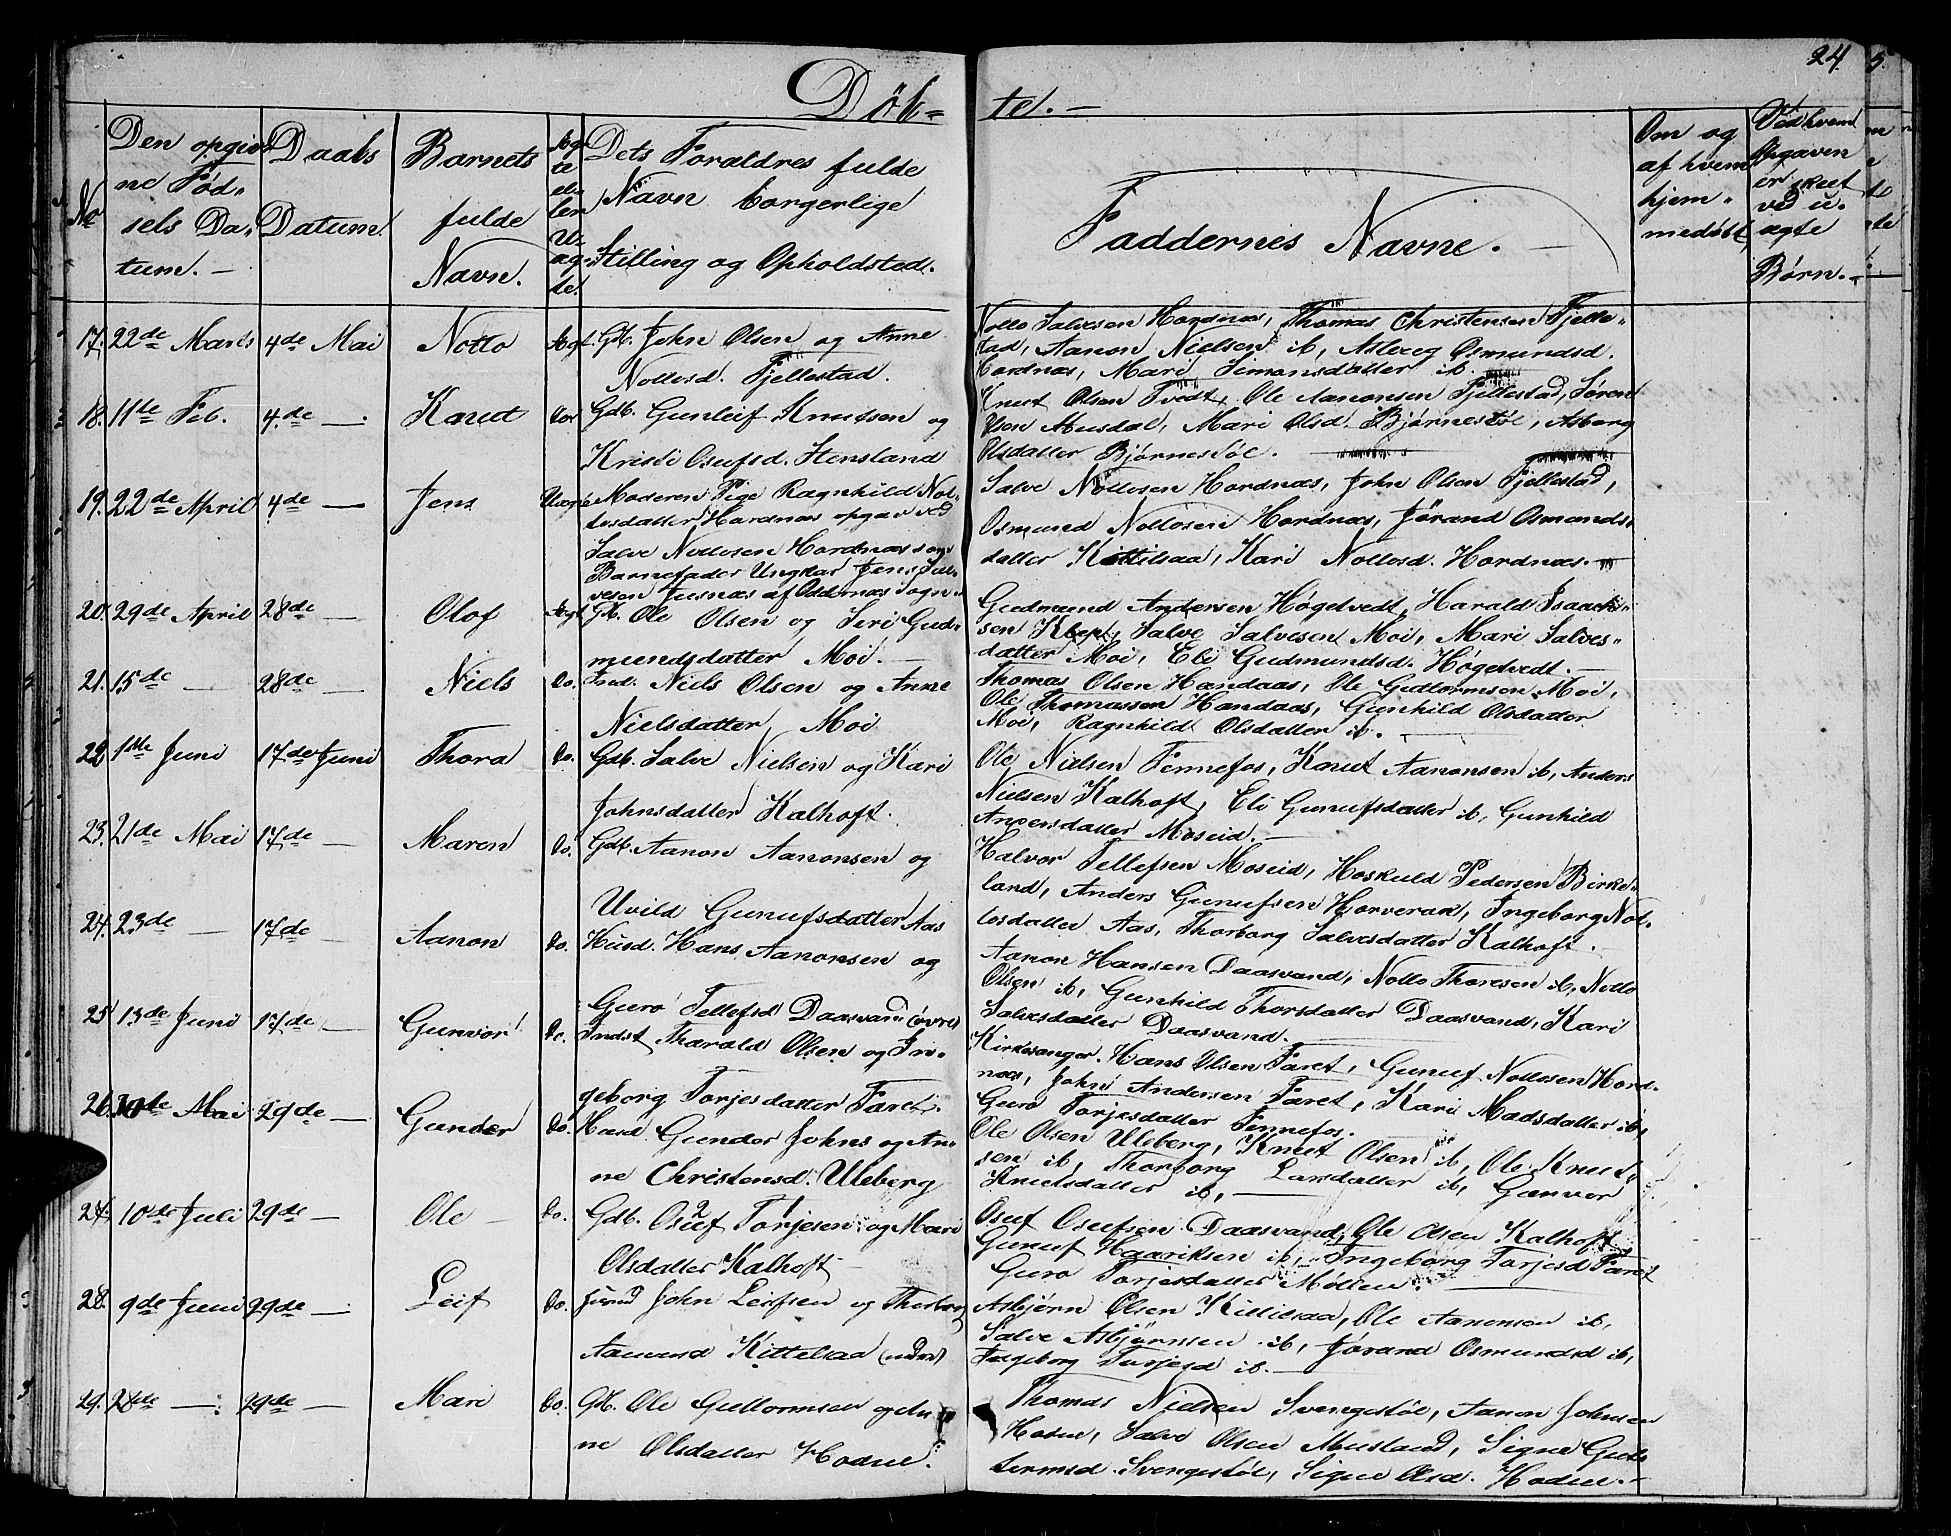 Døb=
te. —
24.
No
Den opgiv
ne Fød=
sels Da=
tum. —
Daabs
Datum.
Barnets
fulde
Navn.
Æg
te
el=
ler
U=
æg=
te.
Dets Forældres fulde
Navn borgerlige
Stilling og Opholdsted.
Faddernes Navne. —
Om og
af hvem
hjem=
medøbt
Ved hvem
Opgaven
er skeet
ved u=
ægte
Børn. —
17. 22de Marts 4de Mai Notto Ægt. Gdb. John Olsen og Anne
Nottosd. Fjellestad.
Notto Salvesen Hordnæs, Thomas Christensen Fjelle=
stad, Aanon Nielsen ib, Asloug Osmundsd.
Hordnæs, Mari Simonsdatter ib.
18. 11de Feb. 4de — Knud do. Gdb. Gunleif Knudsen og
Kristi Osufsd. Stensland
Knut Olsen Tvedt, Ole Aanonsen Fjellestad, Søren
Olsen Musdal, Mari Olsd. Bjørnestøl, Asborg
Olsdatter Bjørnestøl.
19. 22de April 4de — Jens Uægt. Moderen Pige Ragnhild Not=
tesdatter Hordnæs opgav ved
Salve Nottosen Hordnæs som
Barnefader Ungkar Jens Sal=
vesen Jusnæs af Oddernæs Sogn.
Salve Nottosen Hordnæs, John Olsen Fjellestad,
Osmund Nottosen Hordnæs, Jørand Osmunds=
datter Kittilsaa, Kari Nottosd. Hordnæs. —
20. 29de April 28de — Olof Ægt. Gdb. Ole Olsen og Siri Gud=
mundsdatter Moi. —
Gudmund Andersen Høgetvedt, Harald Isaach=
sen Klep, Salve Salvesen Moi, Mari Salves=
datter Moi, Eli Gudmundsd. Høgetvedt. —
21. 15de — 28de — Niels do. Ind. Niels Olsen og Anne
Nielsdatter Moi
Thomas Olsen Handaas, Ole Guttormsen Moi,
Ole Thomassen Handaas, Gunhild Olsdatter
Moi, Ragnhild Olsdatter ib. —
22. 1ste Juni 17de Juni Thora do. Gdb. Salve Nielsen og Kari
Johnsdatter Kalhoft.
Ole Nielsen Fennefos, Knut Aanonsen ib, Anders
Nielsen Kalhoft, Eli Gunufsdatter ib, Gunhild
Andersdatter Moseid. —
23. 21de Mai 17de — Maren do. Gdb. Aanon Aanonsen og
Uvild Gunufsdatter Aas
Halvor Tellefsen Moseid, Hoskuld Pedersen Birke=
land, Anders Gunufsen Horverak, Ingeborg Not=
tesdatter Aas, Thorborg Salvesdatter Kalhoft.
24. 23de — 17de — Aanon do. Husd. Hans Aanonsen og
Guro Tellefsd Daasvand (øvre)
Aanon Hansen Daasvand, Notto Thoresen ib, Notto
Olsen ib, Gunhild Thorsdatter Daasvand, Kari
Salvesdatter Daasvand. —
25 13de Juni 17de — Gunvor do. Indst Tharald Olsen og In=
geborg Torjesdatter Faret.
Kirkesanger Hans Olsen Faret, Gunuf Nottosen Hord=
næs, John Andersen Faret, Kari Madsdatter ib,
Guro Torjesdatter Fennefos.
26. 30de Mai 29de — Gunder do. Husd Gunder Johns og An=
ne Christensd. Uleberg
Ole Olsen Uleberg, Knut Olsen ib, Ole Knut=
sen ib, Thorborg Larsdatter ib, Gunvor
Knutsdatter ib, —
27. 10de Juli 29de — Ole — do. Gdb. Osuf Torjesen og Mari
Olsdatter Kalhoft —
Osuf Osufsen Daasvand, Ole Olsen Kalhoft
Gunuf Haariksen ib, Ingeborg Torjesd Faret
Guro Torjesdatter Mølten. —
28. 9de Juni 29de — Leif do. John Leifsen og Thorborg
Aanund Kittelsaa (nedre)
Asbjørn Olsen Kittilsaa, Ole Aanonsen ib,
Salve Asbjørnsen ib, Jørand Osmundsd ib,
Ingeborg Torjesd ib. —
29. 28de — 29de — Mari do. Gdb. Ole Guttormsen og An=
ne Olsdatter Hodne.
Thomas Nielsen Svengestøl, Aanon Johnsen
Hodne, Salve Olsen Musland, Signe Gutt=
ormsd. Svengestøl, Signe Olsd. Hodne. —